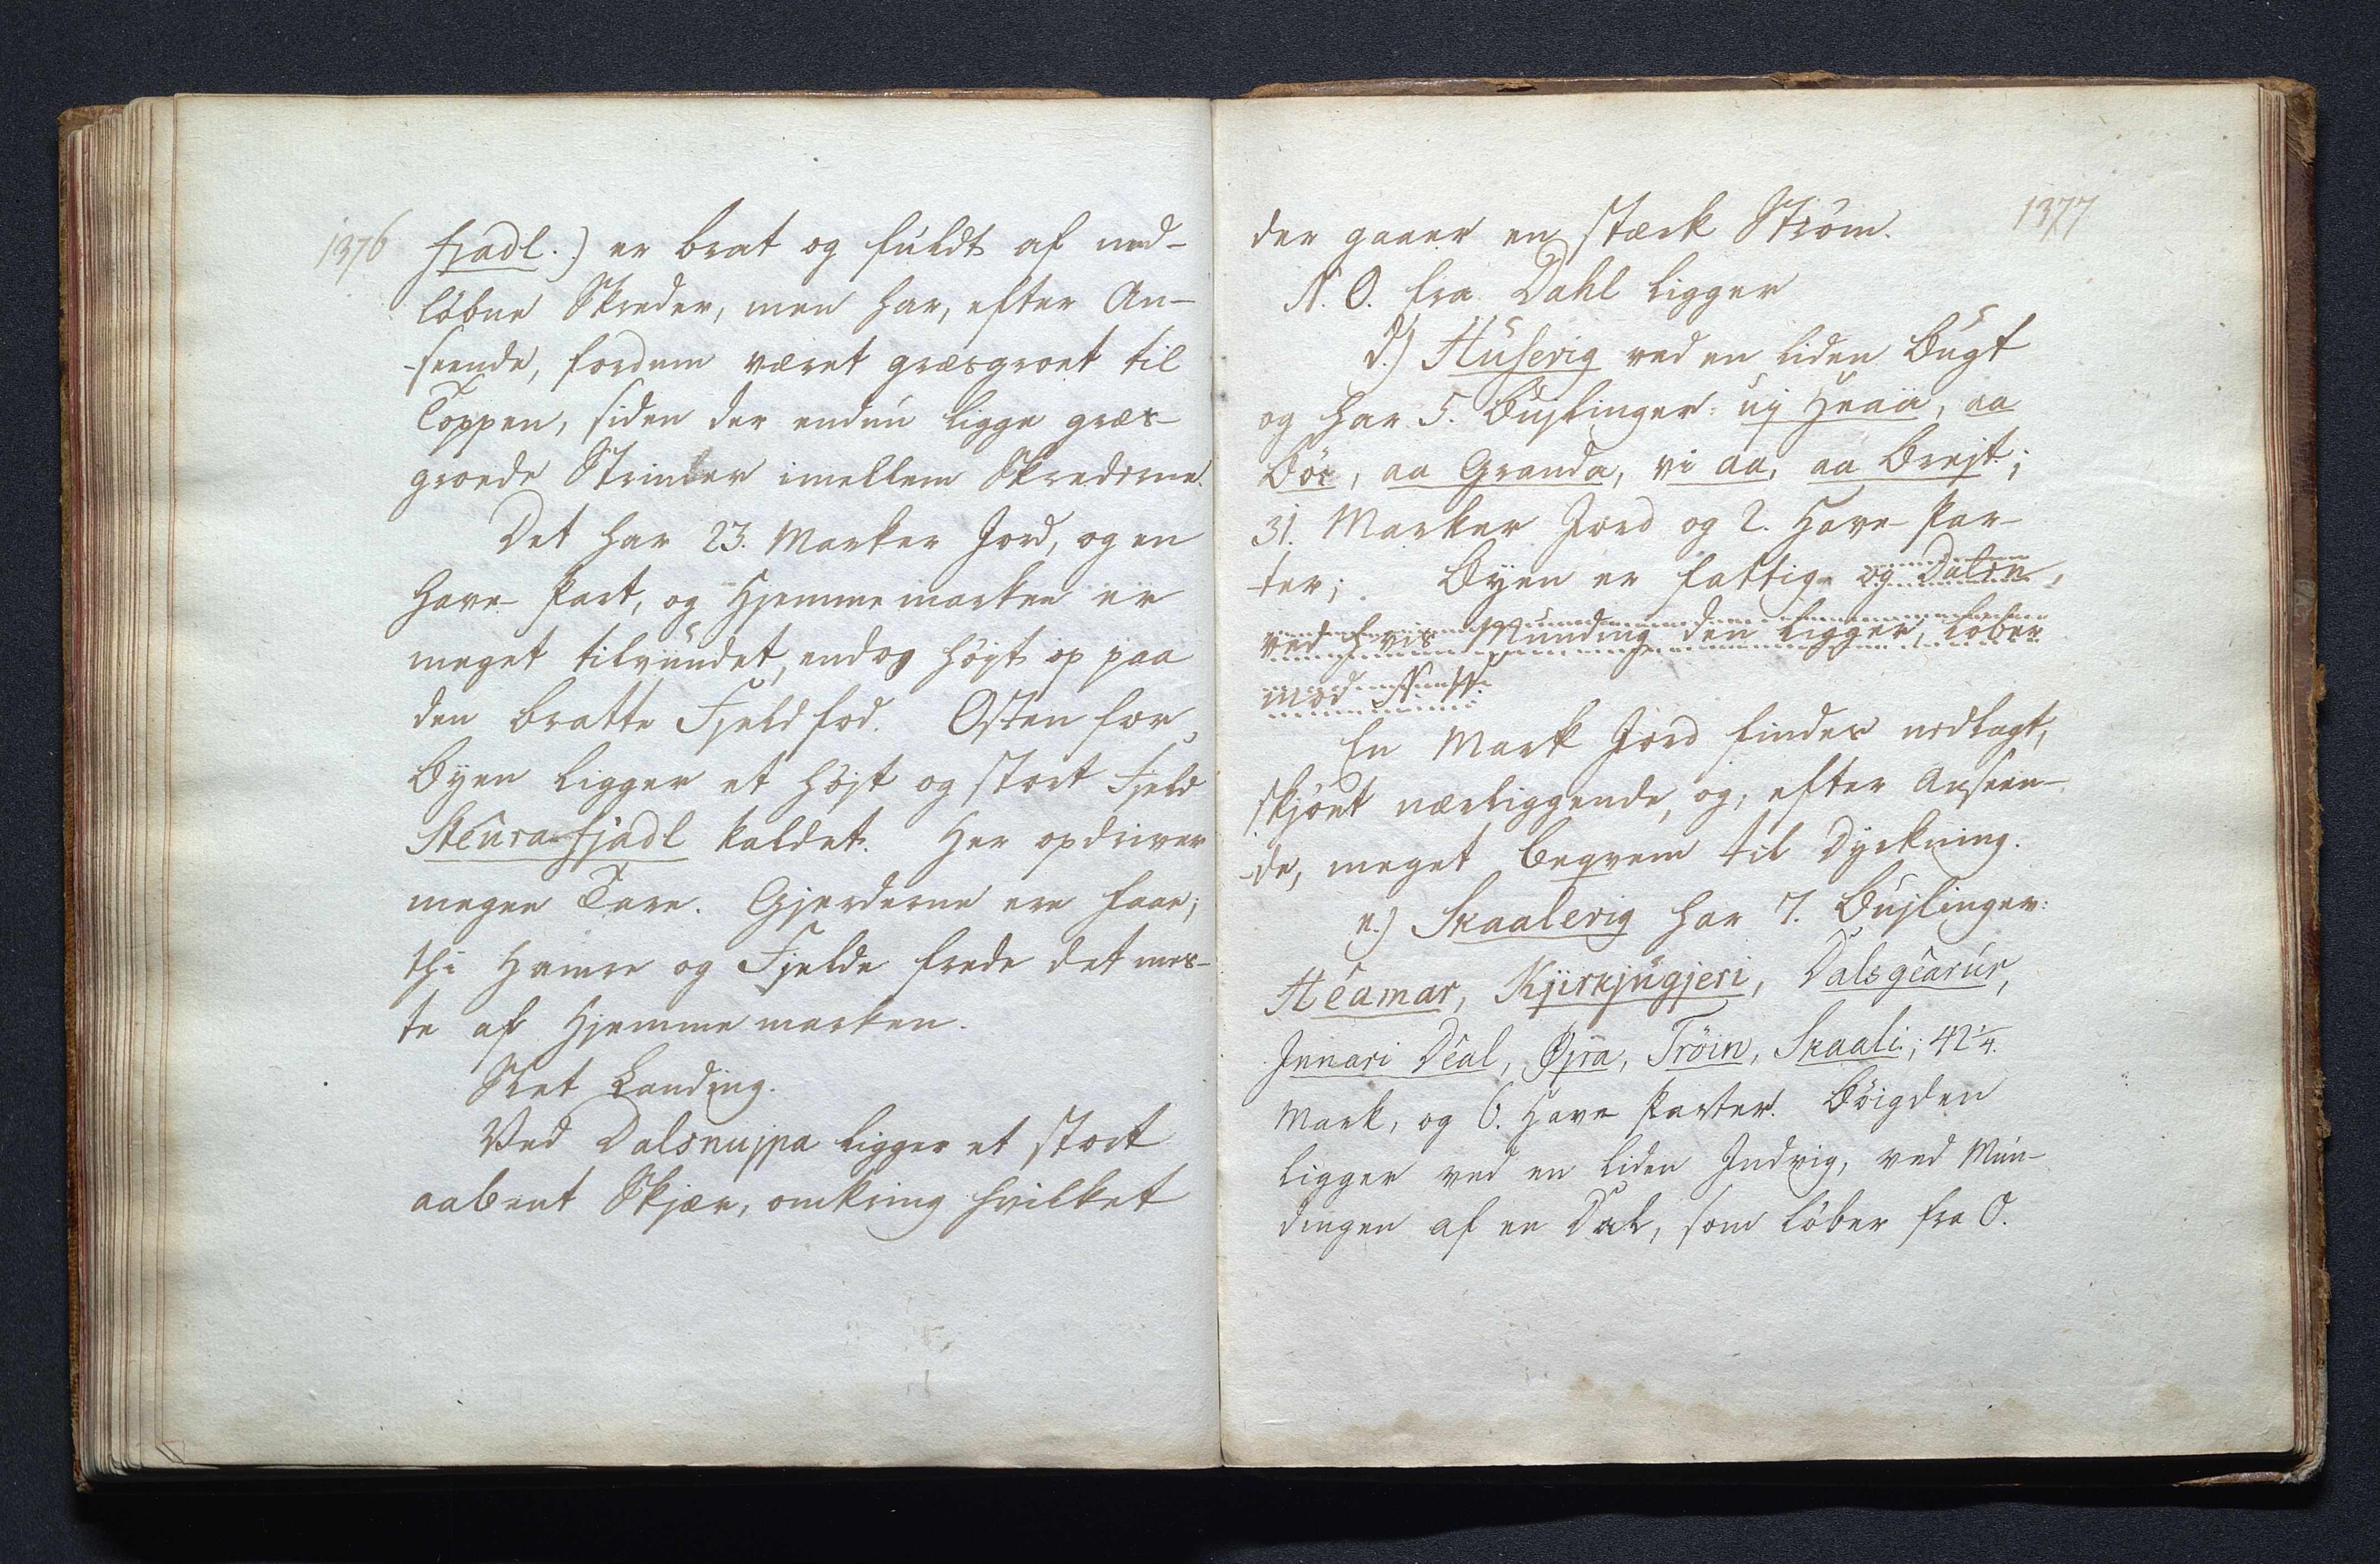 1376
fjadl.) er brat og fuldt af ned-
løbne Skreder, men har, efter An-
-seende, fordum været græsgroet til
Toppen, siden der endnu ligge græs-
groede Strimler imellem Skrederne.
Det har 23. Marker Jord, og en
Have-Part, og Hjemmemarken er
meget tilvundet, endog höjt op paa
den bratte Fjeldfod. Osten for
Byen ligger et höjt og stort Fjeld
Stêura-fjadl kaldet. Her opdriver
megen Tare. Gjerderne ere faae;
thi Hamre og Fjelde frede det mes-
te af Hjemmemarken.
Slet Landing.
Ved Dalsnujpa ligger et stort
aabent Skjær, omkring hvilket
1377
der gaaer en stærk Ström.
N. O. fra Dahl ligger
d.) Húsevig ved en liden Bugt
og har 5. Bujlinger: uj Heaä, aa
Böi, aa Granda, vi aa, aa Brejt;
31. Marker Jord og 2. Have-Par-
ter; Byen er fattig og Dalen,
ved hvis Munding den ligger, løber
mod
En Mark Jord findes nedlagt,
skjönt nærliggende, og, efter Anseen-
-de, meget beqvem til Dyrkning.
e.) Skaalevig har 7. Bujlinger:
Hêamar, Kjirkjugjeri, Dalsgêarúr,
Jnnari Dêal, Ojra, Tröin, Skaali; 42 1/4.
Mark, og 6. Have Parter. Böigden
ligger ved en liden Indvig, ved Mun-
dingen af en Dal, som løber fra O.